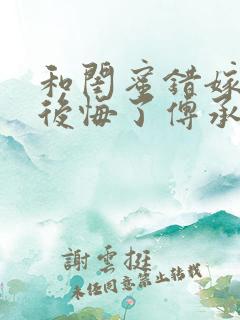 和閨蜜錯嫁
後悔了傅承
謝雲挺
未经同意禁止转载